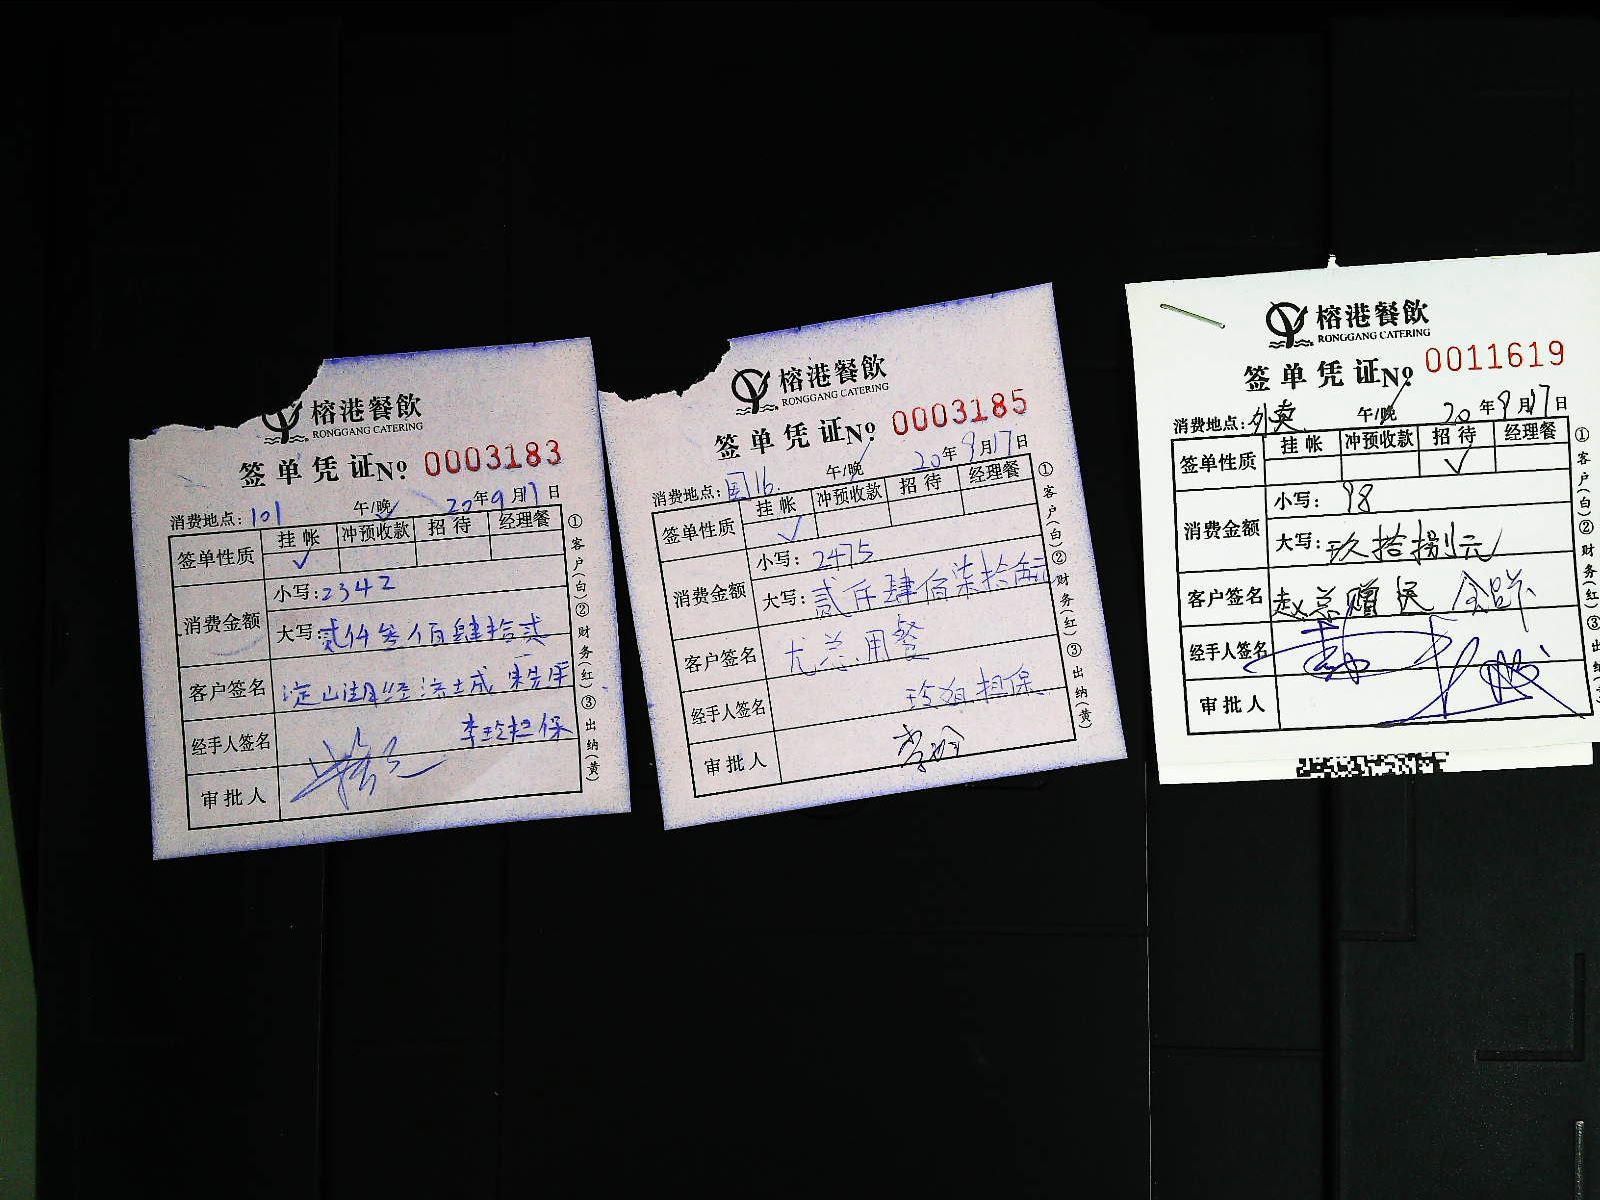 榕港餐飲
RONGGANG CATERING
签单凭证No 0003183
消费地点: 101 午/晚 20年9月17日
签单性质 挂帐 冲预收款 招待 经理餐
✓
消费金额 小写: 2342
大写: 贰仟叁佰肆拾贰
客户签名 淀山湖经济城
经手人签名 李玲担保
审批人
①客户(白)②财务(红)③出纳(黄)
榕港餐飲
RONGGANG CATERING
签单凭证No 0003185
消费地点: 国16. 午/晚 20年9月17日
签单性质 挂帐 冲预收款 招待 经理餐
✓
消费金额 小写: 2475
大写: 贰仟肆佰柒拾伍元
客户签名 尤总用餐
经手人签名 担保
审批人
①客户(白)②财务(红)③出纳(黄)
榕港餐飲
RONGGANG CATERING
签单凭证No 0011619
消费地点: 外卖 午/晚 20年9月17日
签单性质 挂帐 冲预收款 招待 经理餐
✓
消费金额 小写: 98
大写: 玖拾捌元
客户签名 赵总赠送
经手人签名
审批人
①客户(白)②财务(红)③出纳